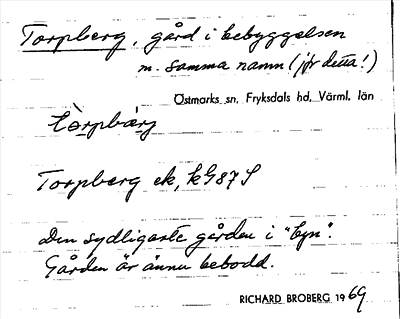 Torpberg, gård i bebyggelsen
m. samma namn (jfr detta!)
Östmarks sn, Fryksdals hd, Värml. län
Torpberg ek, kG 87 S
Den sydligaste gården i "byn".
Gården är ännu bebodd.
RICHARD BROBERG 1969